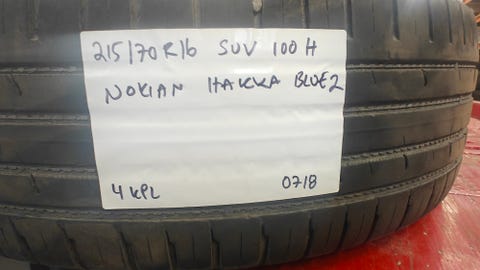 215/70R16 SUV 100H
NOKIAN HAKKA BLUE2
4 KPL 0718